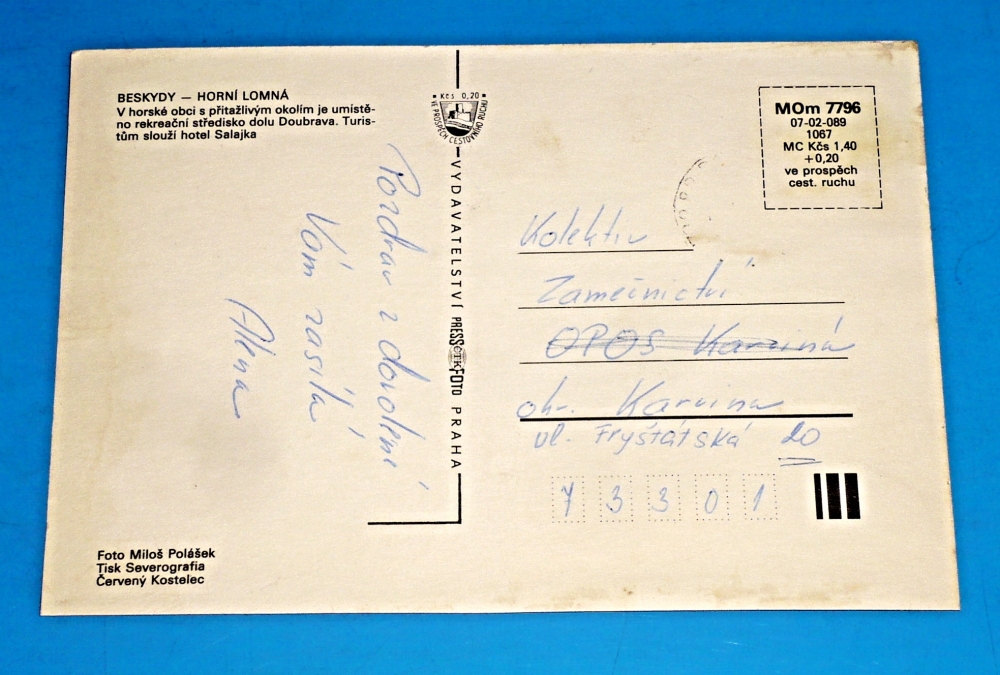 BESKYDY — HORNÍ LOMNÁ
V horské obci s přitažlivým okolím je umístě-
no rekreační středisko dolu Doubrava. Turis-
tům slouží hotel Salajka
Pozdrav z dovolené
Vám zasílá
Alena
Foto Miloš Polášek
Tisk Severografia
Červený Kostelec
Kčs 0,20
VE PROSPĚCH CESTOVNÍHO RUCHU
VYDAVATELSTVÍ PRESSFOTO PRAHA
ČTK
MOm 7796
07-02-089
1067
MC Kčs 1,40
+0,20
ve prospěch
cest. ruchu
Kolektiv
Zamečnictví
OPOS Karviná
okr. Karvina
ul. Fryštátská 20
73301